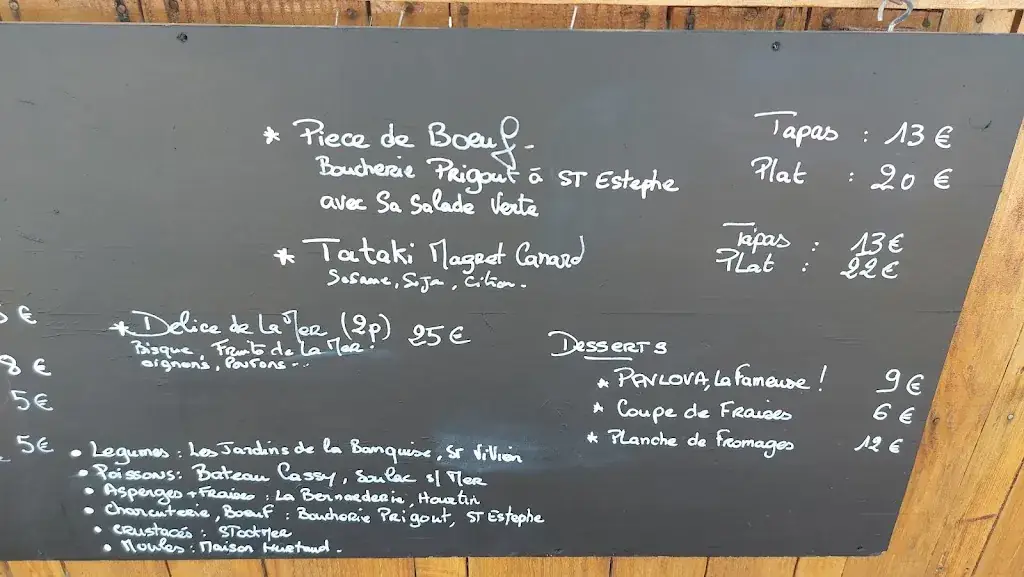 * Piece de Boeuf. Tapas : 13 €
Boucherie Prigout à ST Estephe Plat : 20 €
avec Sa Salade Verte
* Tataki Magret Canard Tapas : 13 €
Sesame, Soja, Citron. Plat : 22 €
€
* Delice de La Mer (2p) 25 €
Bisque, Fruits de La Mer.
oignons, Poutons...
8 €
5 €
5 €
Desserts
* PAVLOVA, La fameuse ! 9 €
* Coupe de Fraises 6 €
* Planche de Fromages 12 €
• Legumes : Les Jardins de la Banquise, ST Vivien
• Poissons : Bateau Cassy, Soulac s/ Mer
• Asperges + Fraises : La Bernaederie, Hourtin
• Charcuterie, Boeuf : Boucherie Prigout, ST Estephe
• crustacés : STockMer
• Moules : Maison Hurtaud.